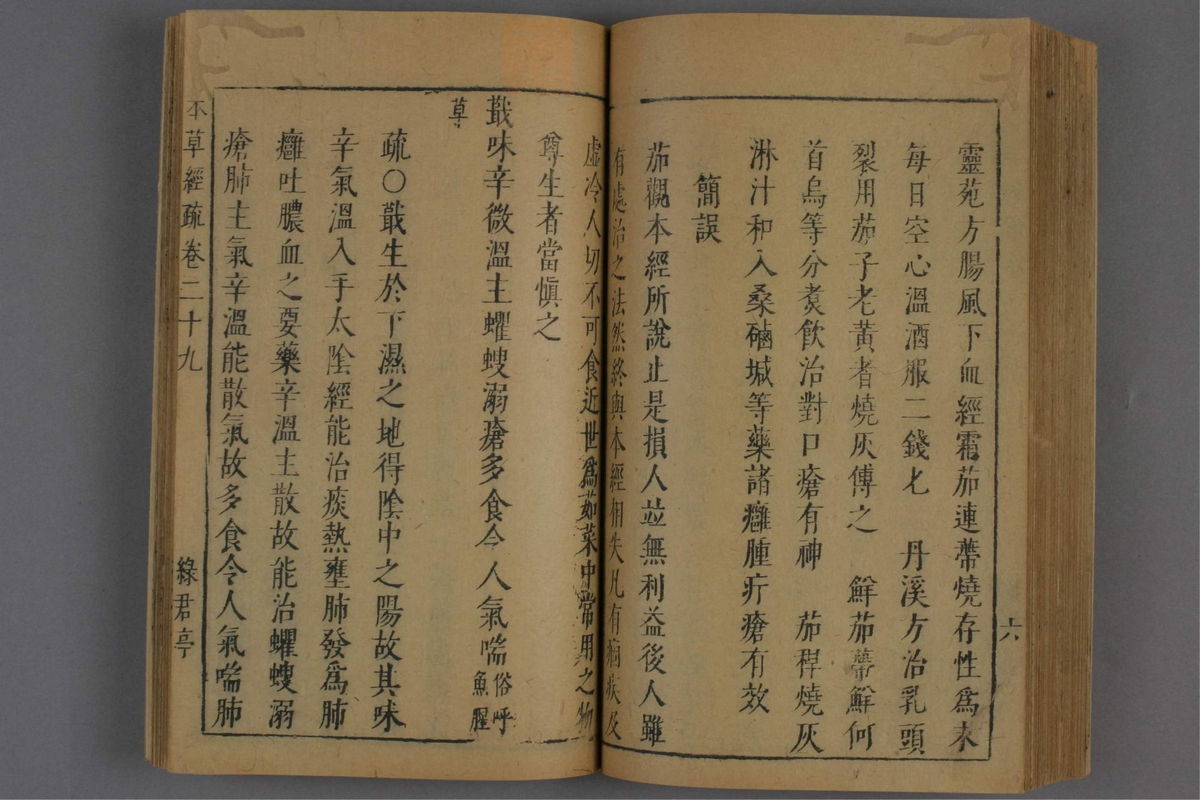 靈苑方腸風下血經霜茄連蒂燒存性爲末
每日空心溫酒服二錢匕　丹溪方治乳頭
裂用茄子老黃者燒灰傅之　鮮茄蒂鮮何
首烏等分煑飲治對口瘡有神　茄稈燒灰
淋汁和入桑磠堿等藥諸癰腫疔瘡有效
簡誤
茄觀本經所說止是損人並無利益後人雖
有處治之法然終與本經相失凡有痼疾及
六
虛冷人切不可食近世爲茹菜中常用之物
尊生者當慎之
蕺味辛微溫主蠼螋溺瘡多食令人氣喘俗呼
魚腥
草
疏○蕺生於下濕之地得陰中之陽故其味
辛氣溫入手太陰經能治痰熱壅肺發爲肺
癰吐膿血之要藥辛溫主散故能治蠼螋溺
瘡肺主氣辛溫能散氣故多食令人氣喘肺
本草經疏卷二十九
綠君亭